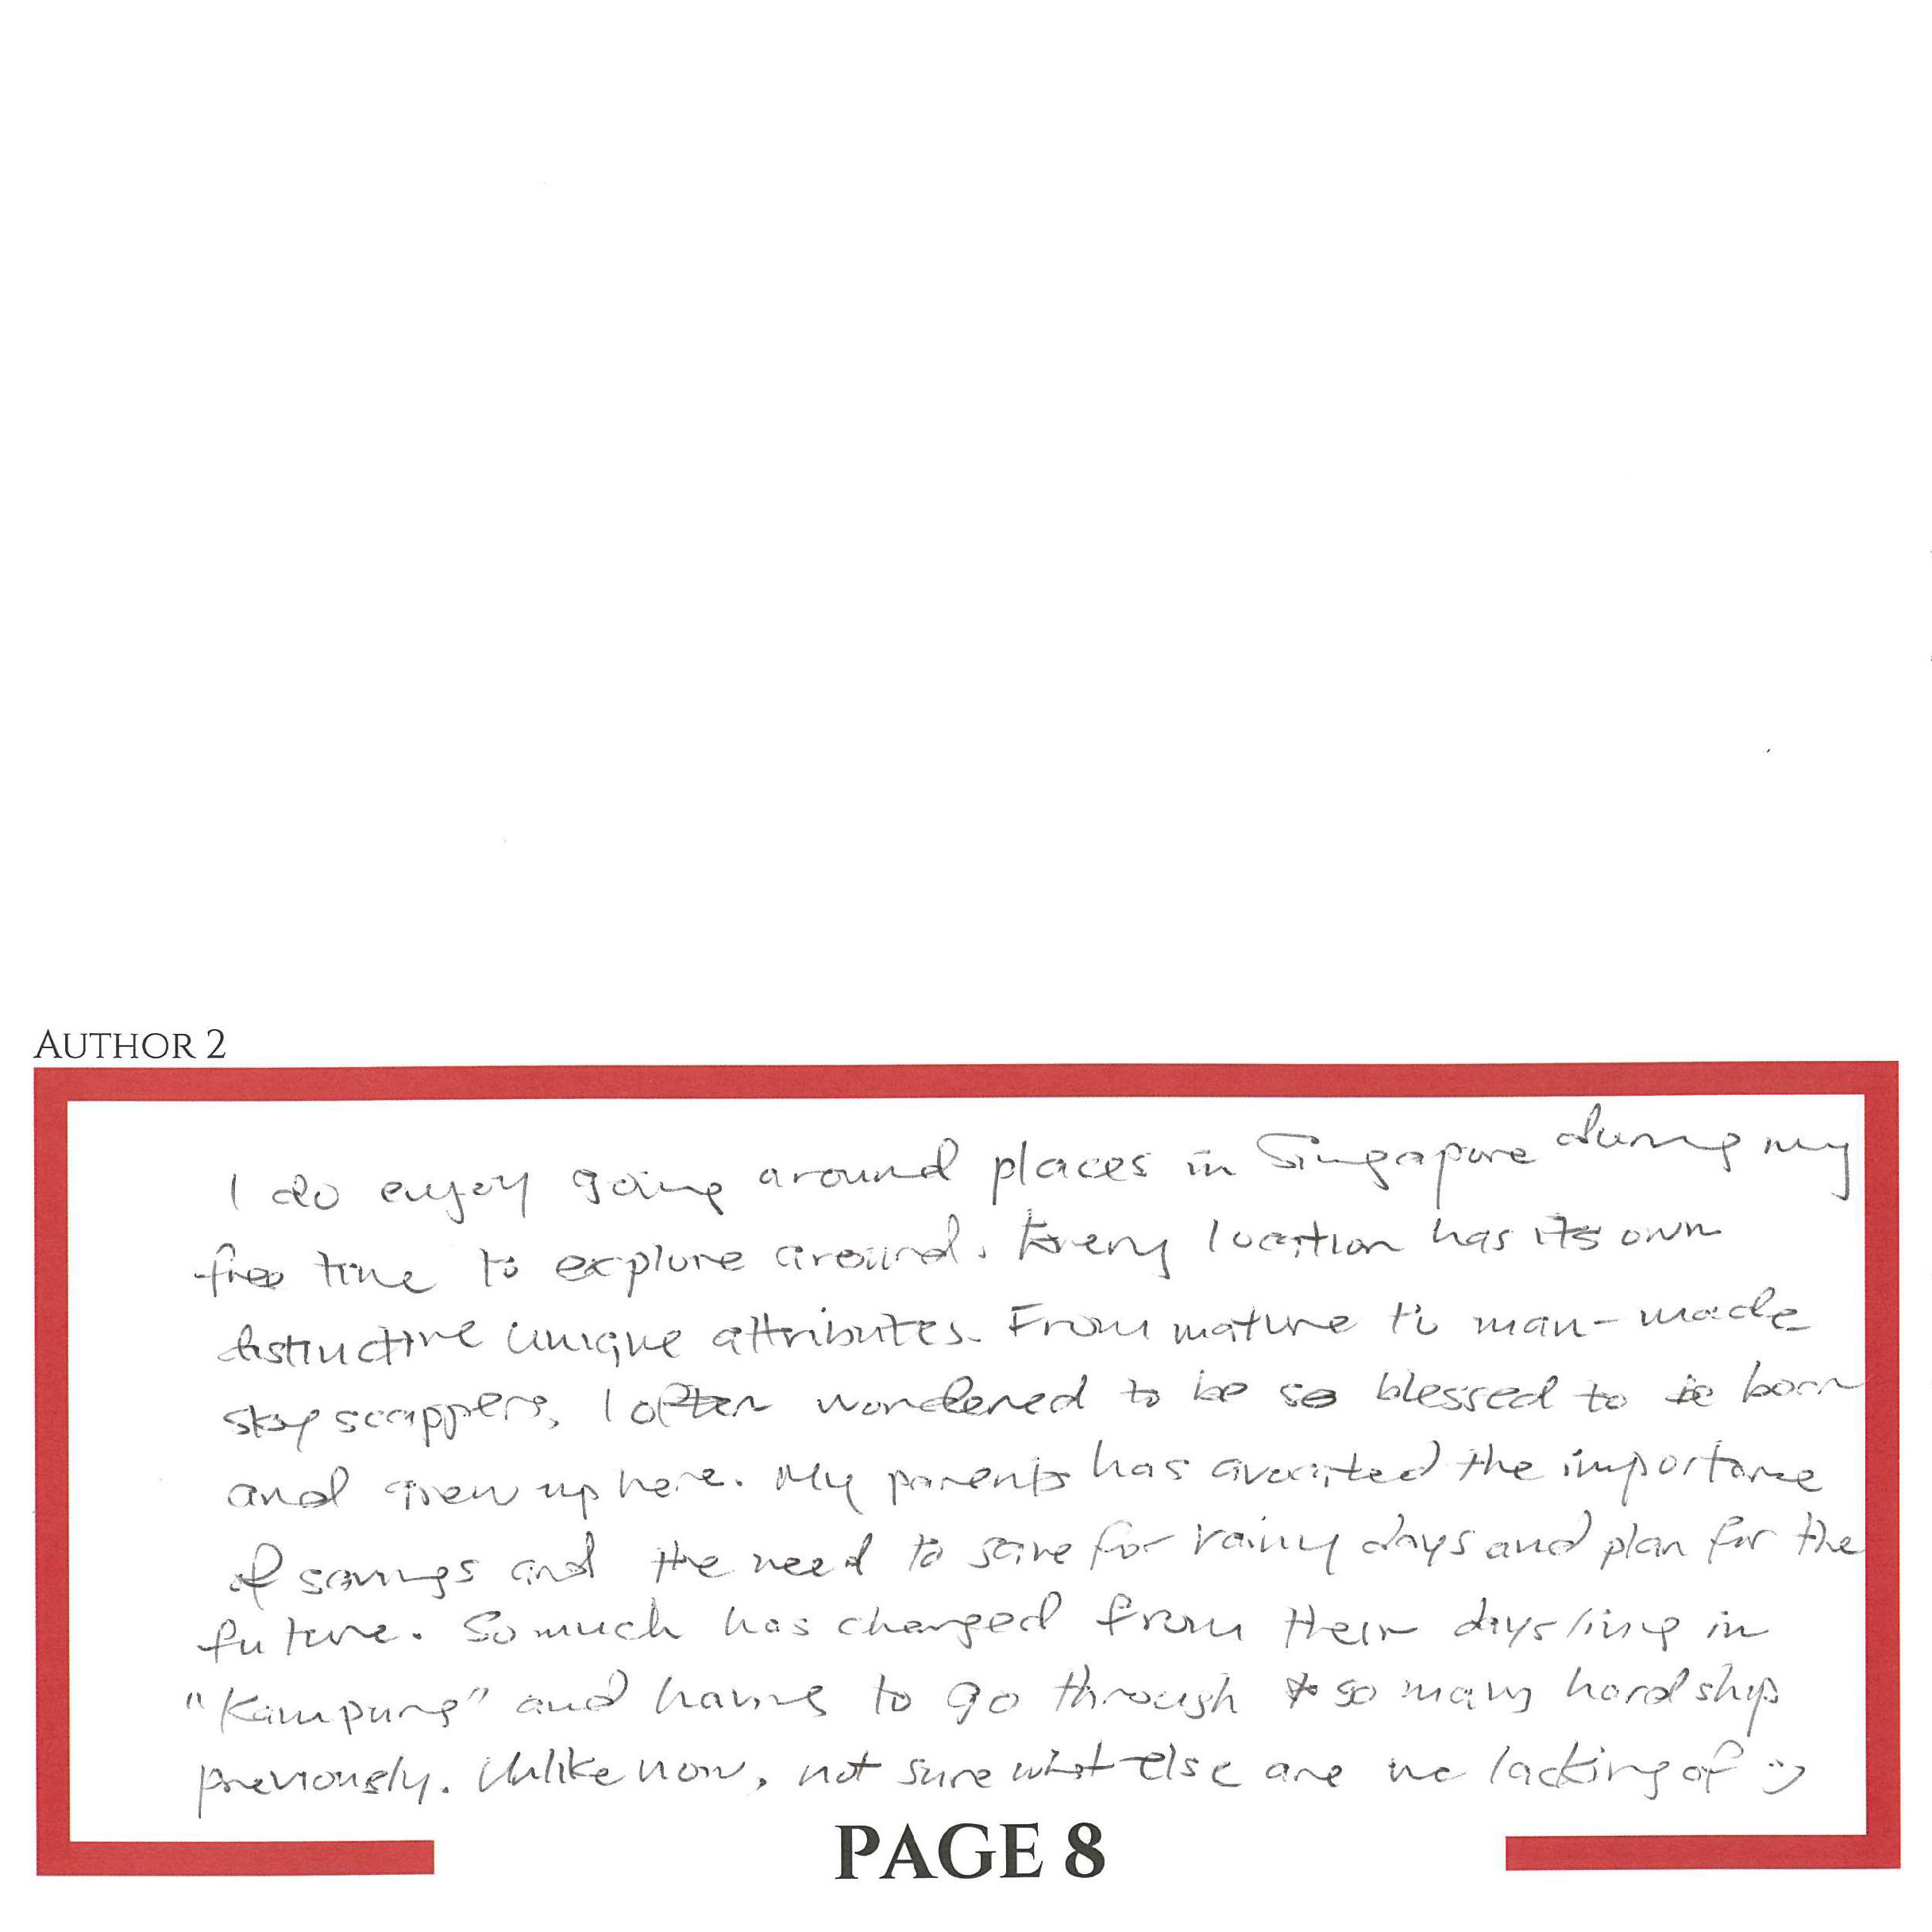 AUTHOR 2
I do enjoy going around places in Singapore during my
free time to explore around. Every location has its own
distinctive unique attributes. From mature to man-made
sky scappers, I often wondered to be so blessed to be born
and grew up here. My parents has the importance
of savings and the need to save for rainy days and plan for the
future. So much has changed from their days living in
"Kampung" and having to go through so many hardship
previously. Unlike now, not sure what else are we lacking of :)
PAGE 8